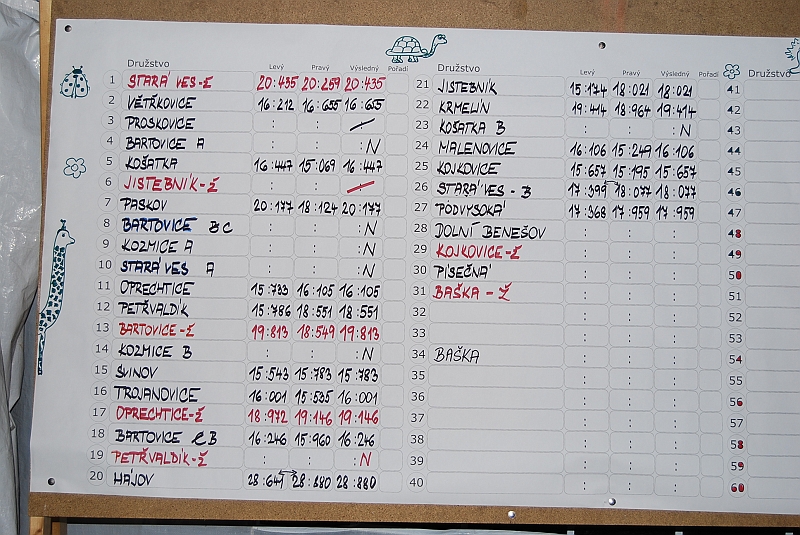 Družstvo Levý Pravý Výsledný Pořadí
1 STARÁ VES-Ž 20:435 20:259 20:435
2 VĚTŘKOVICE 16:212 16:655 16:655
3 PROSKOVICE : :
4 BARTOVICE A : : :N
5 KOŠATKA 16:447 15:069 16:447
6 JISTEBNÍK-Ž : :
7 PASKOV 20:177 18:124 20:177
8 BARTOVICE BC : : :N
9 KOZMICE A : : :N
10 STARÁ VES A : : :N
11 OPRECHTICE 15:733 16:105 16:105
12 PETŘVALDÍK 15:786 18:551 18:551
13 BARTOVICE-Ž 19:813 18:549 19:813
14 KOZMICE B : : :N
15 SVINOV 15:543 15:783 15:783
16 TROJANOVICE 16:001 15:535 16:001
17 OPRECHTICE-Ž 18:972 19:146 19:146
18 BARTOVICE B 16:246 15:960 16:246
19 PETŘVALDÍK-Ž : : :N
20 HÁJOV 28:641 28:880 28:880
Družstvo Levý Pravý Výsledný Pořadí
21 JISTEBNÍK 15:174 18:021 18:021
22 KRMELÍN 19:414 18:964 19:414
23 KOŠATKA B : : :N
24 MALENOVICE 16:106 15:249 16:106
25 KOJKOVICE 15:657 15:195 15:657
26 STARÁ VES - B 17:399 18:077 18:077
27 PODVYSOKÁ 17:368 17:959 17:959
28 DOLNÍ BENEŠOV : : :
29 KOJKOVICE-Ž : : :
30 PÍSEČNÁ : : :
31 BAŠKA - Ž : : :
32 : : :
33 : : :
34 BAŠKA : : :
35 : : :
36 : : :
37 : : :
38 : : :
39 : : :
40 : : :
Družstvo
41
42
43
44
45
46
47
48
49
50
51
52
53
54
55
56
57
58
59
60